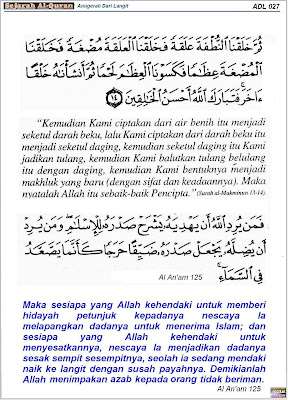 Sejarah Al-Quran Anugerah Dari Langit ADL 027
ثُمَّ خَلَقْنَا ٱلنُّطْفَةَ عَلَقَةً فَخَلَقْنَا ٱلْعَلَقَةَ مُضْغَةً فَخَلَقْنَا
ٱلْمُضْغَةَ عِظَٰمًا فَكَسَوْنَا ٱلْعِظَٰمَ لَحْمًا ثُمَّ أَنشَأْنَٰهُ خَلْقًا
ءَاخَرَ فَتَبَارَكَ ٱللَّهُ أَحْسَنُ ٱلْخَٰلِقِينَ ١٤
"Kemudian Kami ciptakan dari air benih itu menjadi
seketul darah beku, lalu Kami ciptakan dari darah beku itu
menjadi seketul daging, kemudian seketul daging itu Kami
jadikan tulang, kemudian Kami balutkan tulang belulang
itu dengan daging, kemudian Kami bentuknya menjadi
makhluk yang baru (dengan sifat dan keadaannya). Maka
nyatalah Allah itu sebaik-baik Pencipta." (Surah al-Mukminun 13-14).
فَمَن يُرِدِ ٱللَّهُ أَن يَهْدِيَهُۥ يَشْرَحْ صَدْرَهُۥ لِلْإِسْلَٰمِ وَمَن يُرِدْ
أَن يُضِلَّهُۥ يَجْعَلْ صَدْرَهُۥ ضَيِّقًا حَرَجًا كَأَنَّمَا يَصَّعَّدُ
فِى ٱلسَّمَآءِ
Al An'am 125
Maka sesiapa yang Allah kehendaki untuk memberi
hidayah petunjuk kepadanya nescaya Ia
melapangkan dadanya untuk menerima Islam; dan
sesiapa yang Allah kehendaki untuk
menyesatkannya, nescaya Ia menjadikan dadanya
sesak sempit sesempitnya, seolah ia sedang mendaki
naik ke langit dengan susah payahnya. Demikianlah
Allah menimpakan azab kepada orang tidak beriman.
Al An'am 125